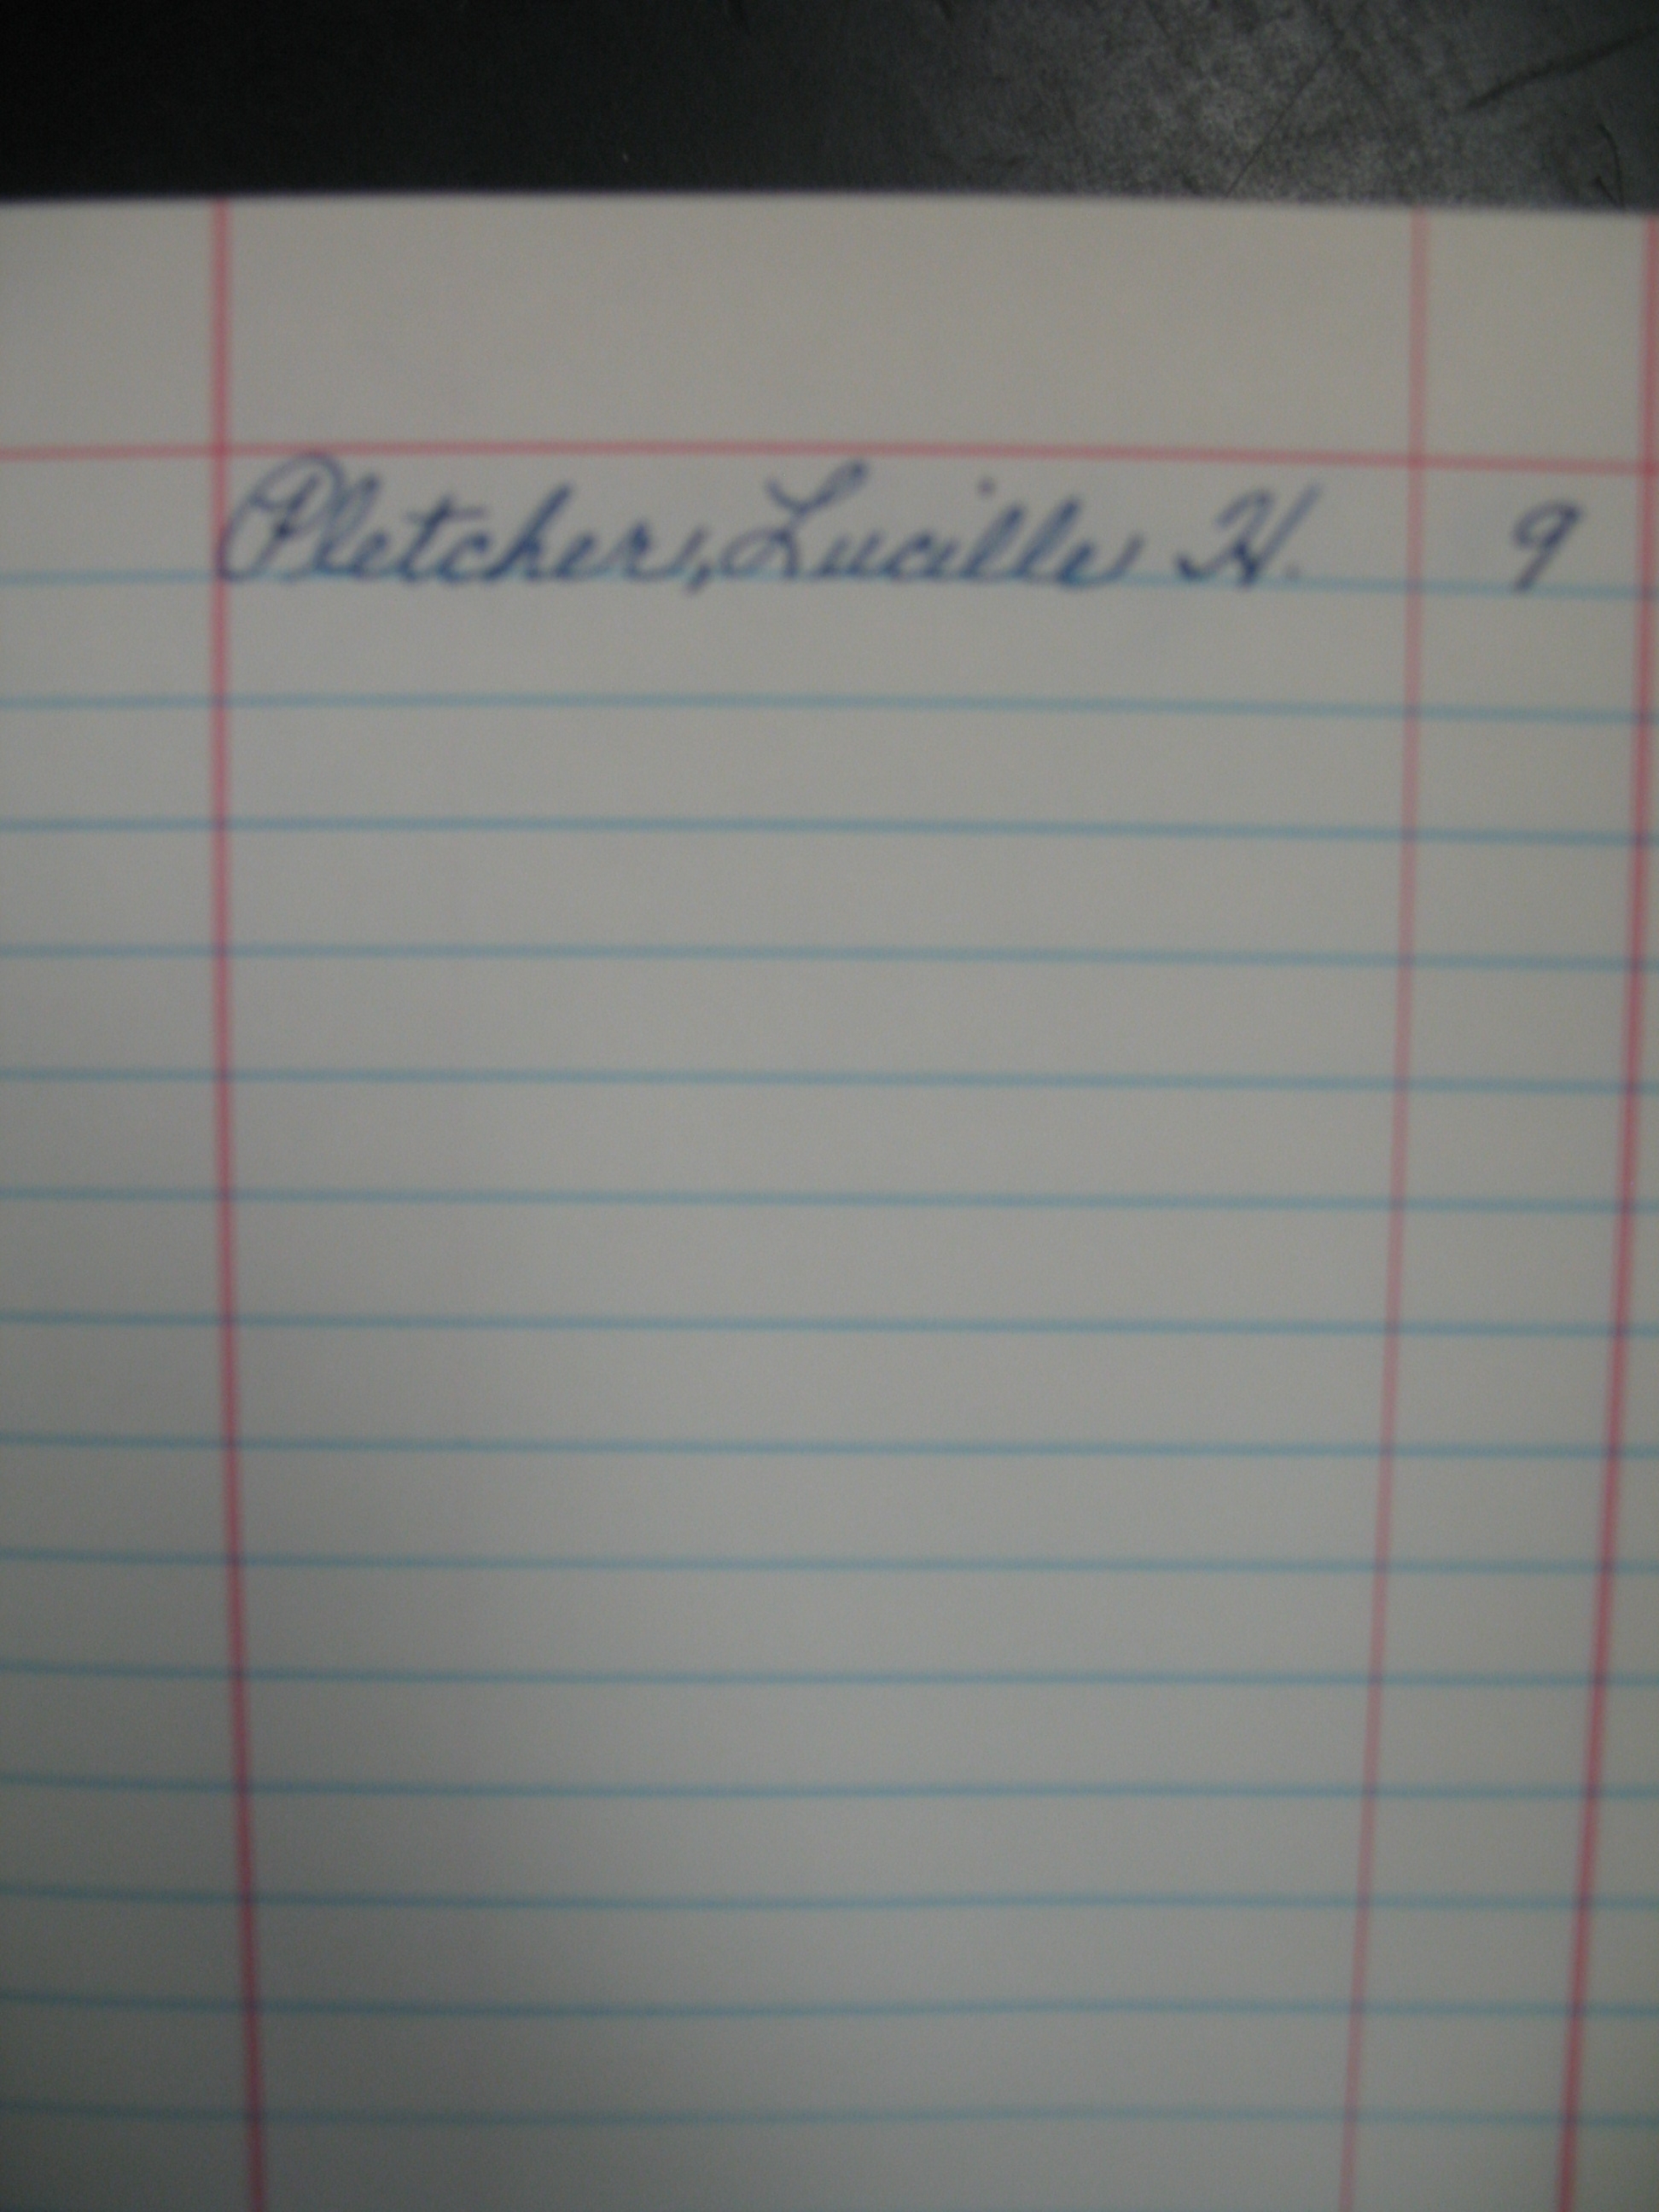 Pletcher, Lucille H. 9